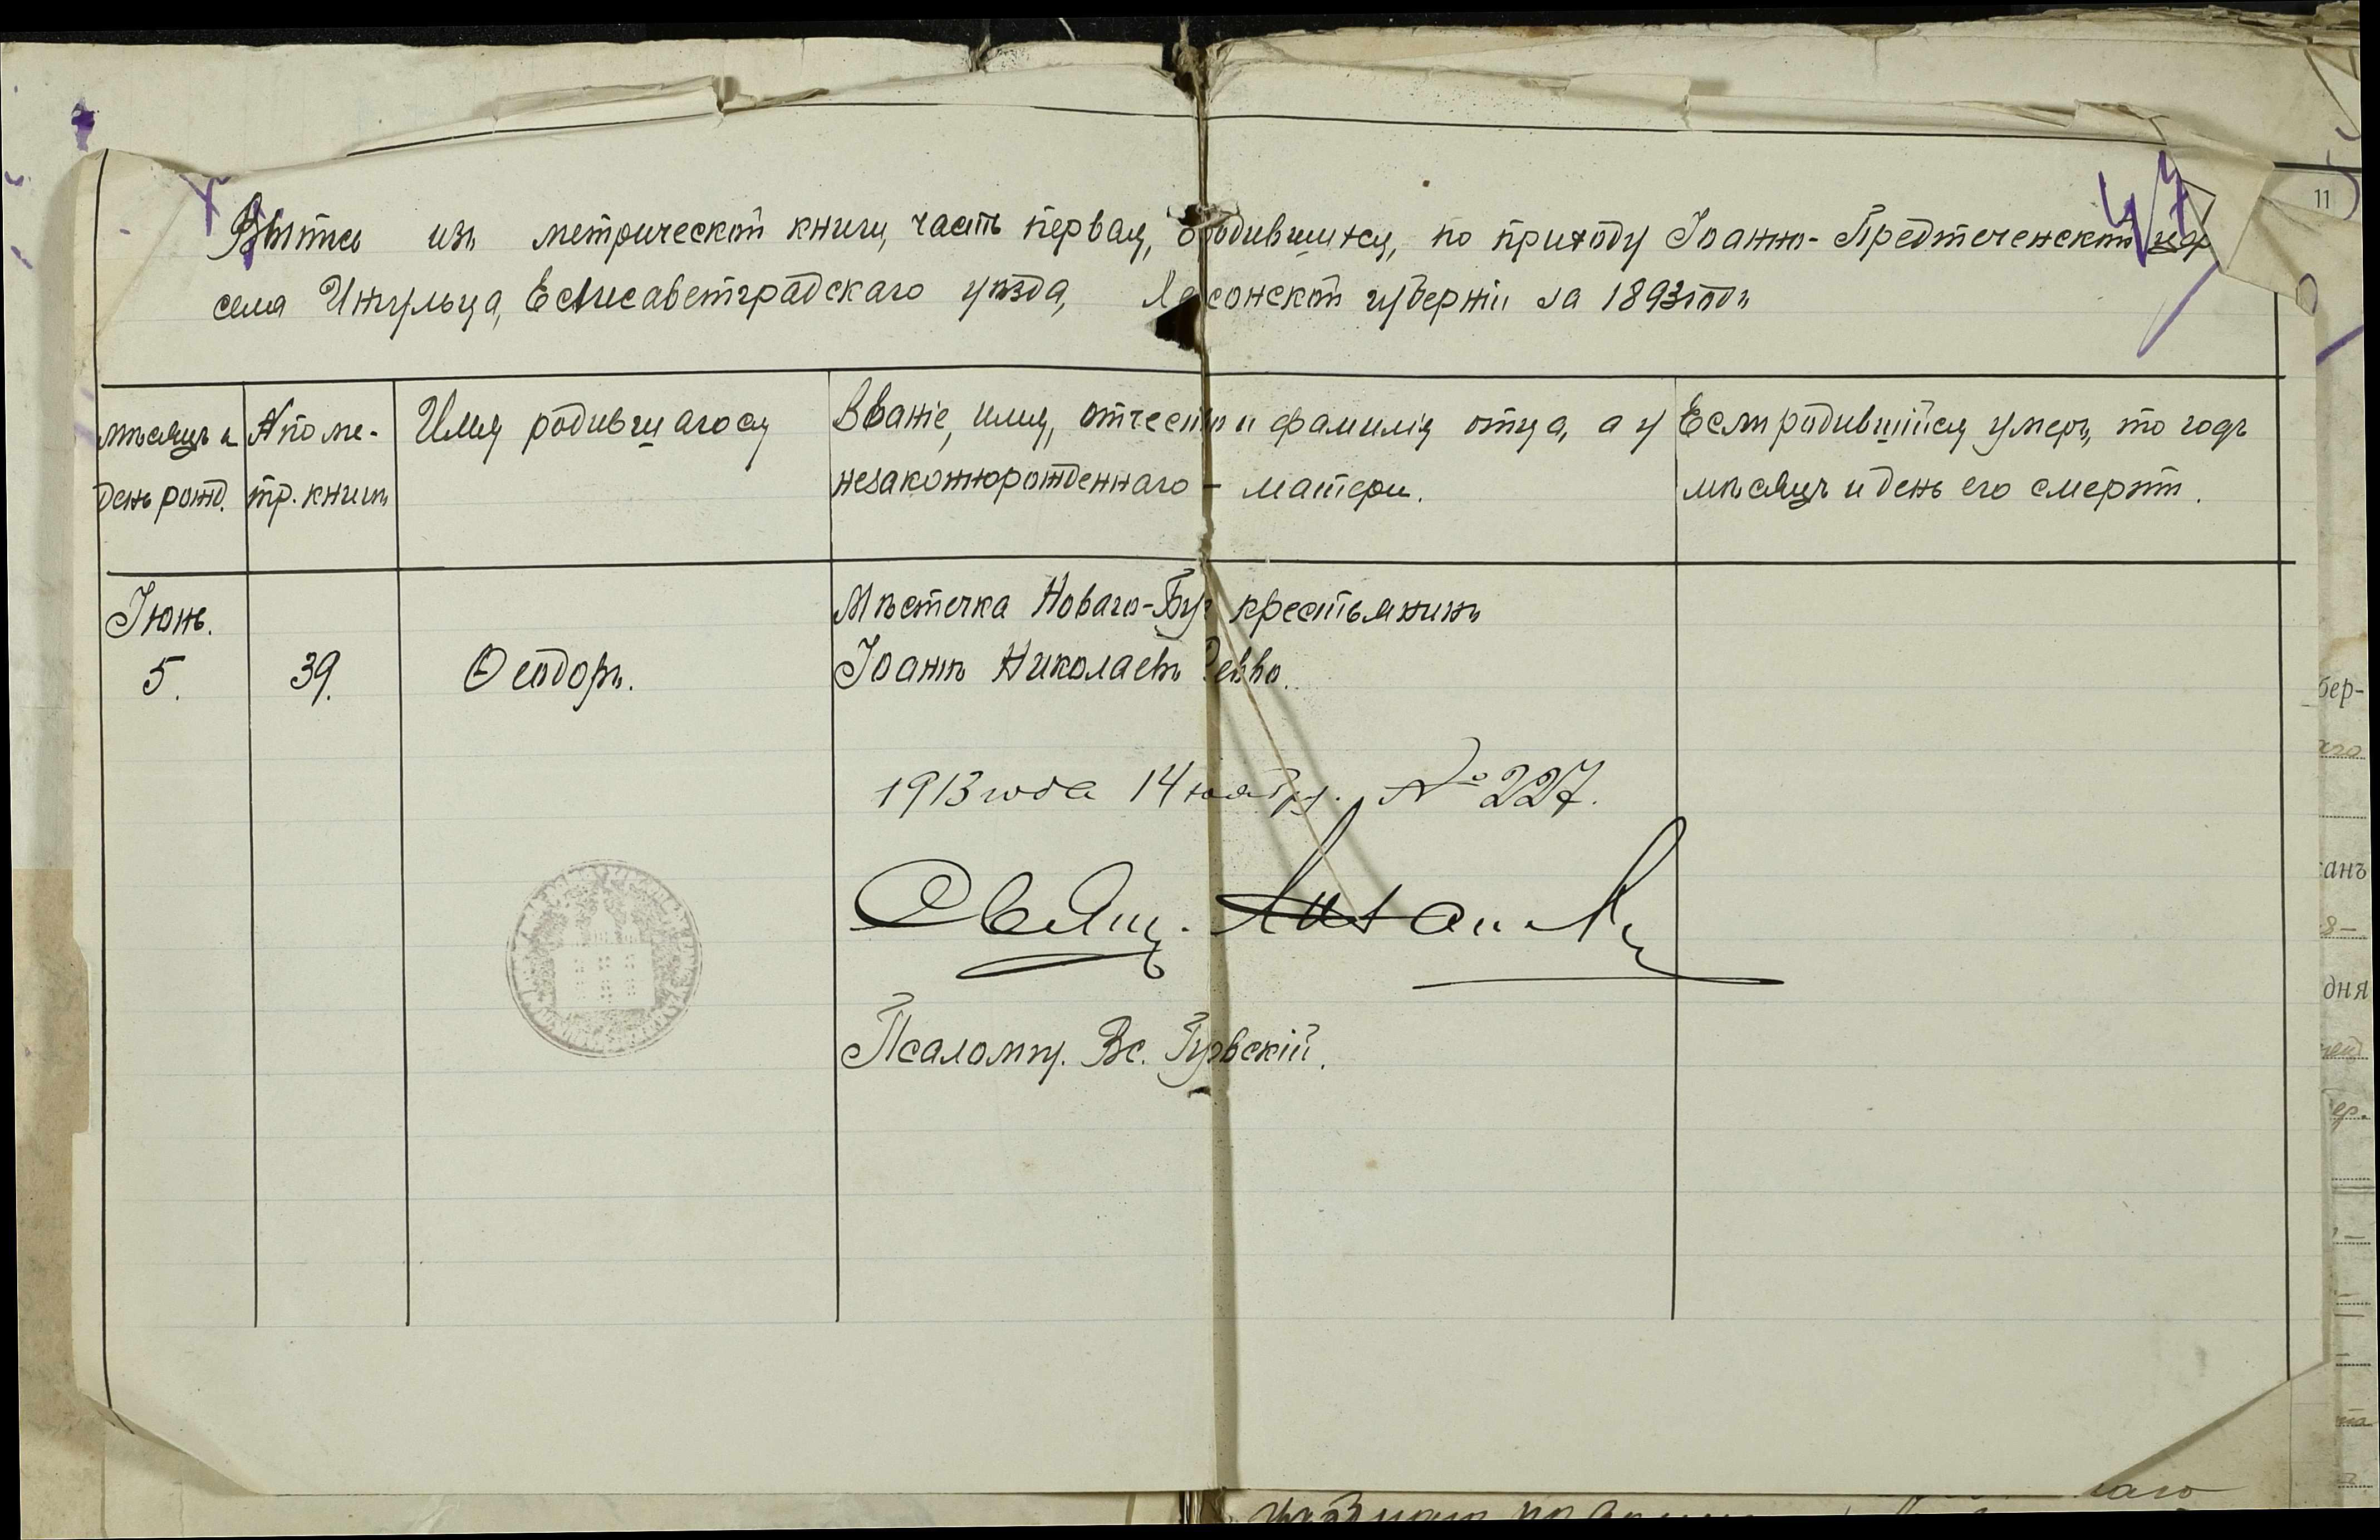 47
11
Выпись изъ метрической книги, часть первая, о родившихся, по приходу Іоанно-Предтеченской цер
села Ингульца, Елисаветградскаго уѣзда, Херсонской губерніи за 1893 годъ
Мѣсяцъ и день рожд.
№ по метр. книги
Имя родившагося
Званіе, имя, отчество и фамилія отца, а у
незаконнорожденнаго - матери.
Если родившійся умеръ, то годъ
мѣсяцъ и день его смерти.
Іюнь.
5.
39.
Ѳеодоръ.
Мѣстечка Новаго-Буг крестьянинъ
Іоаннъ Николаевъ
1913 года 14 ноября. № 227.
Свящ.
Псаломщ. Вс. Гурвскій.
бер-
анъ
дня